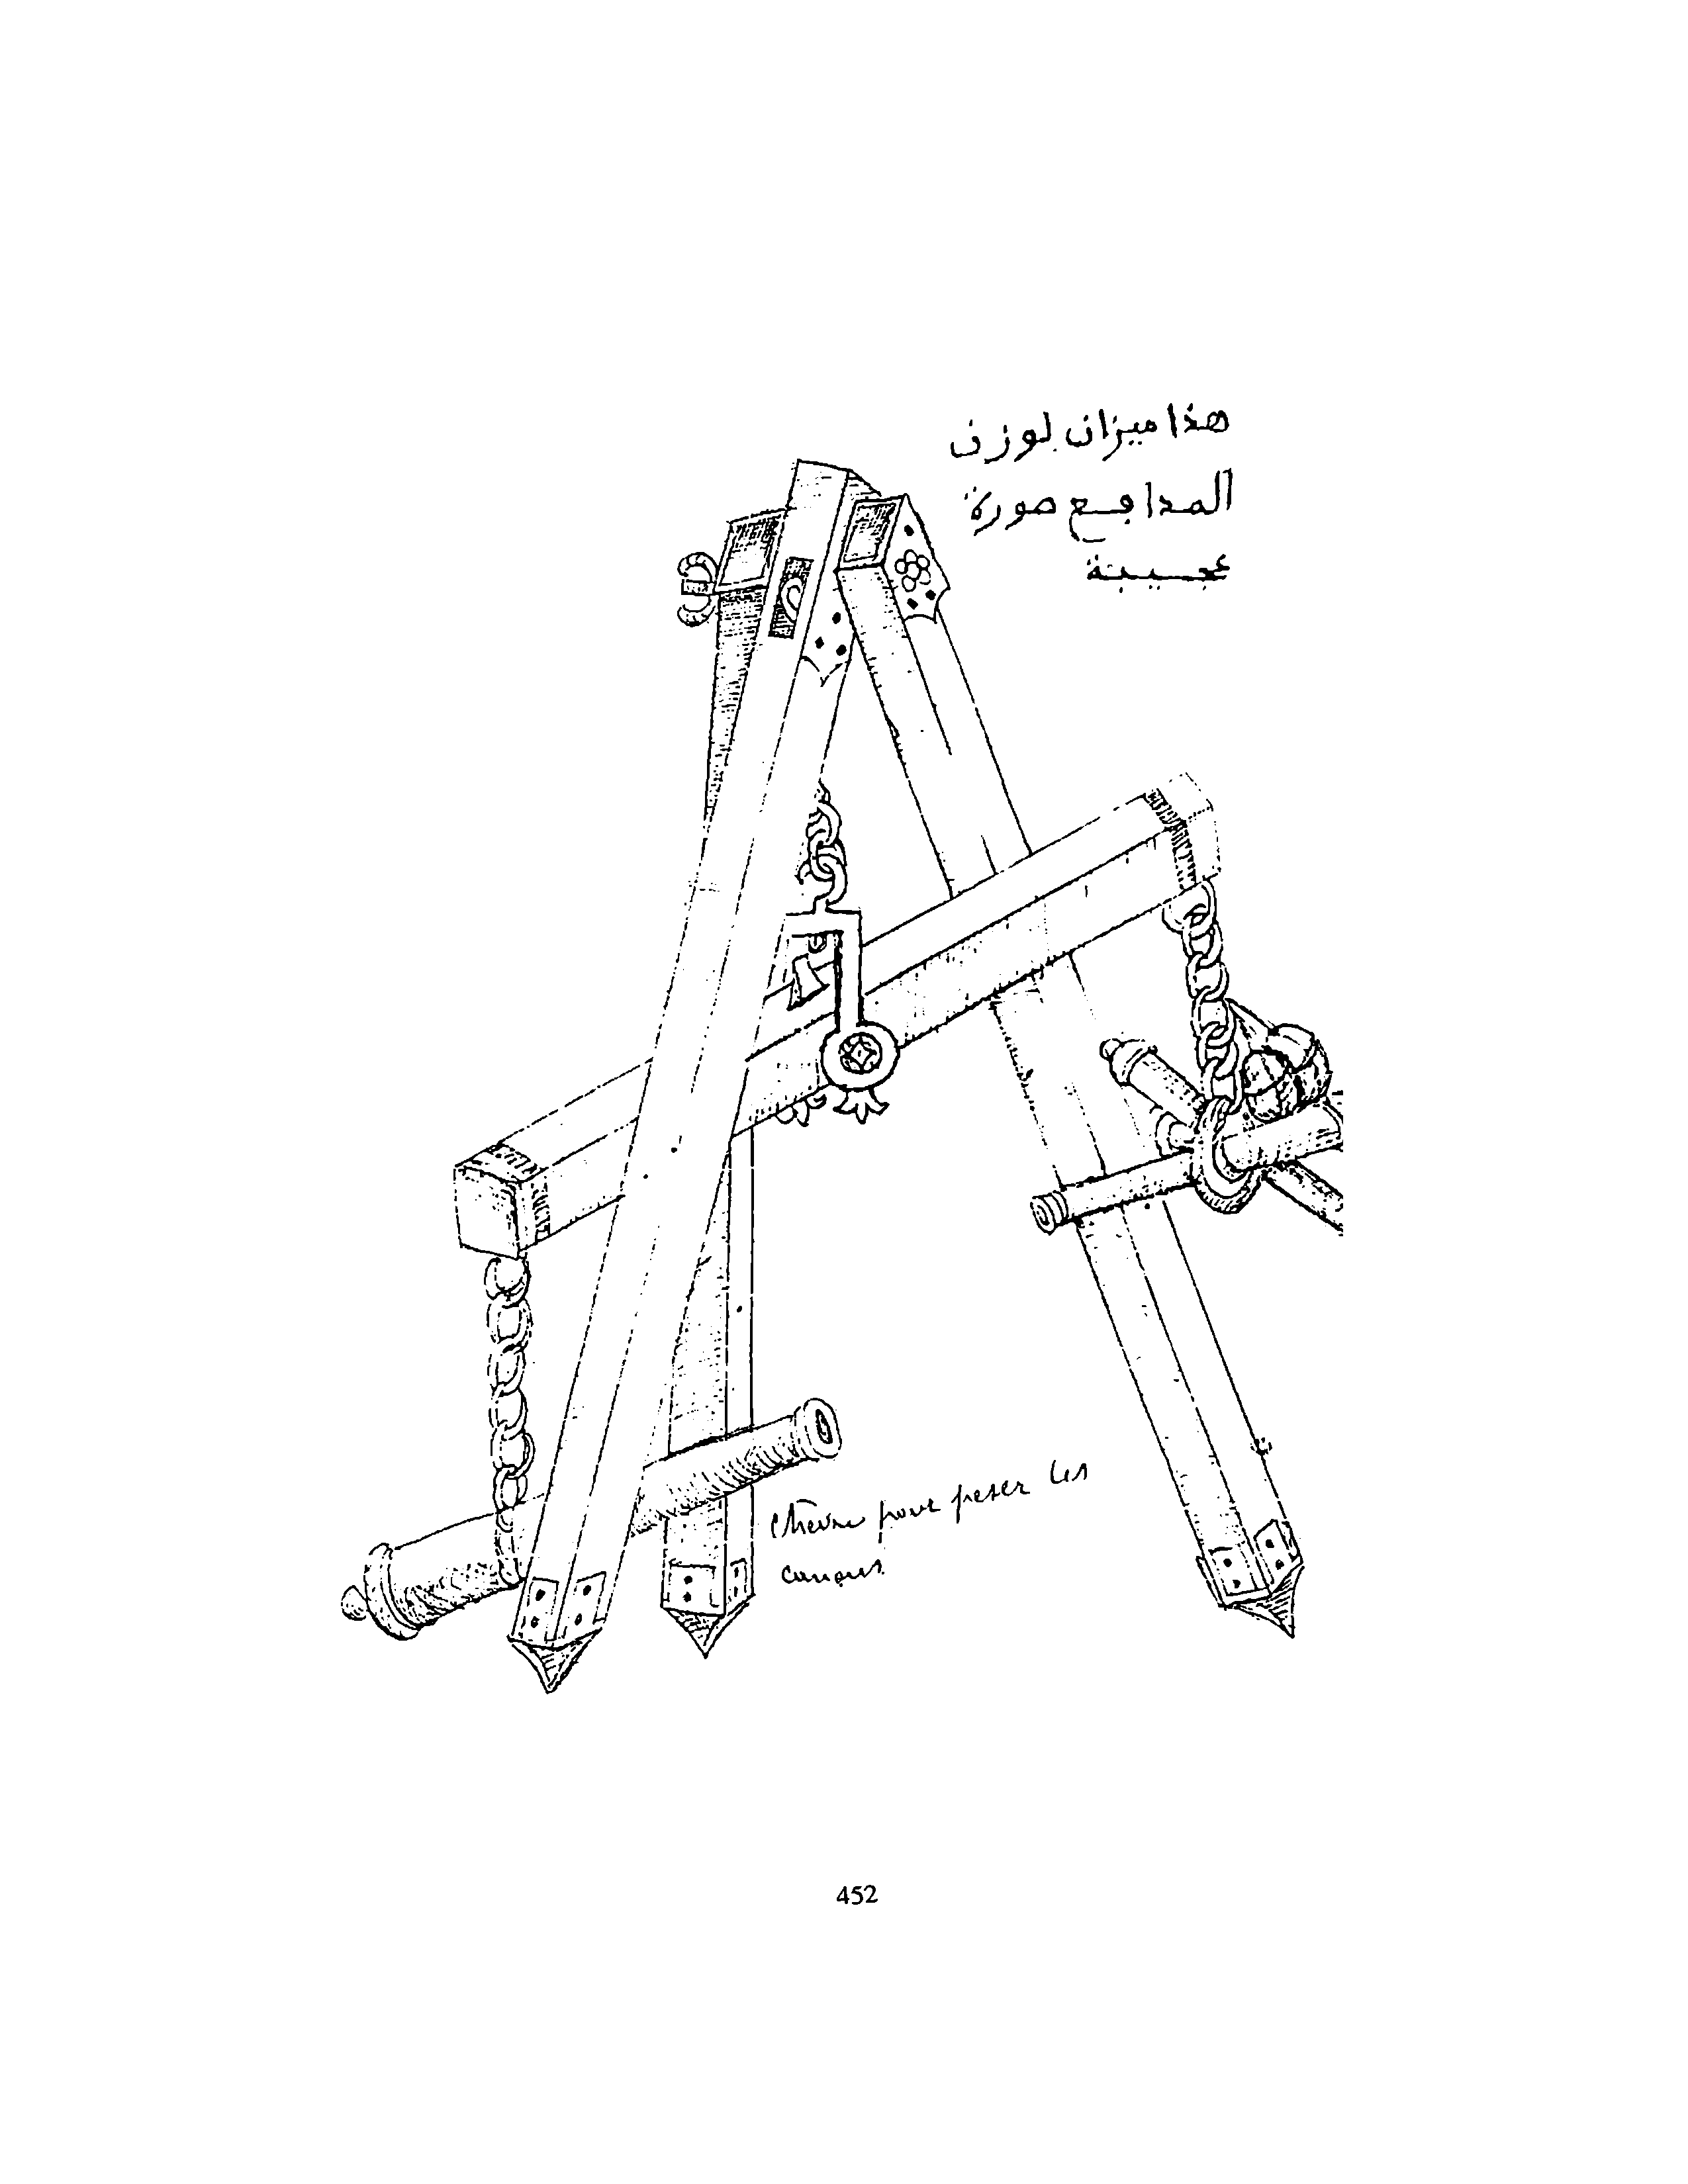 هذا ميزان لوزن
المدافع صورة
عجيبة
chèvre pour peser les
canons
452